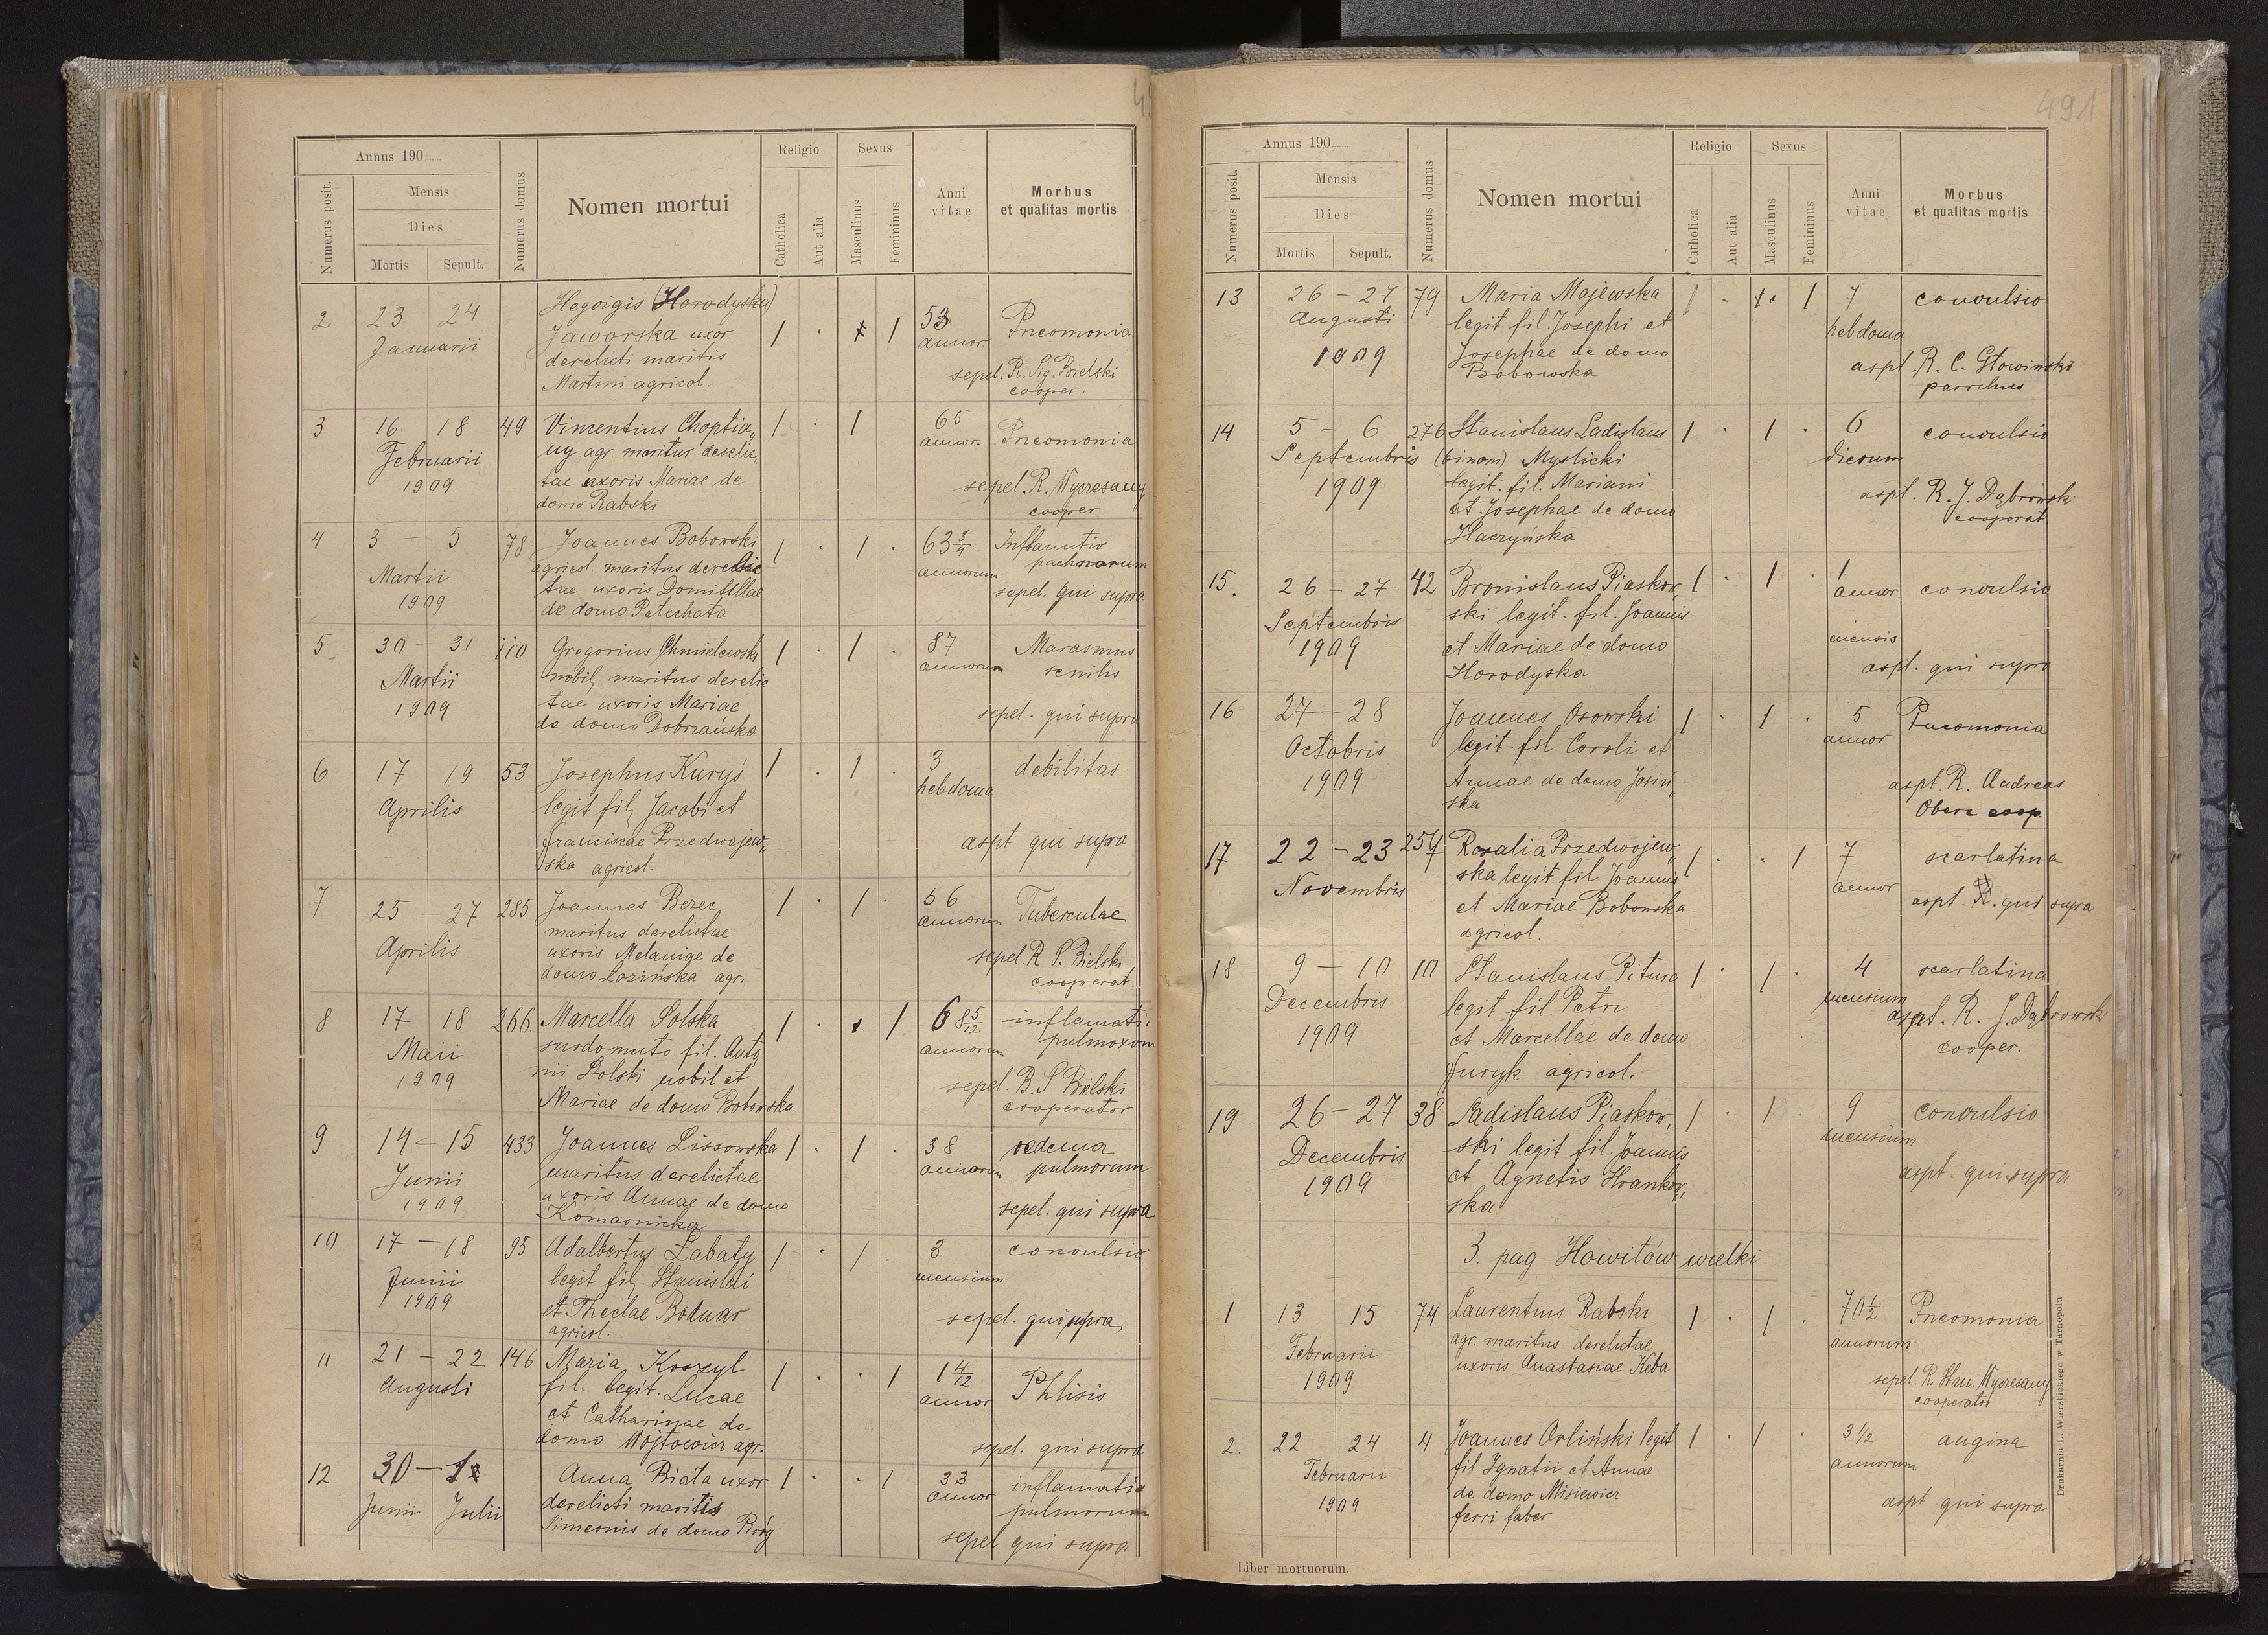 491
Annus 190
Religio
Sexus
Numerus posit.
Mensis
Dies
Mortis Sepult.
Numerus domus
Nomen mortui
Catholica
Aut alia
Masculinus
Femininus
Anni vitae
Morbus et qualitas mortis
2 23 24 Januarii
(Horodyska)
Jaworska uxor
derelicti maritis
Martini agricol.
1 . 1
53 annor
Pneomonia
sepel. R. Sig. Bielski
cooper.
3 16 18 49
Februarii
1909
Vincentius Choptia„
ny agr. maritus derelic„
tae uxoris Mariae de
domo Rabski
1 . 1
65 annor.
Pneomonia
sepel. R. Wyczesany
cooper
4 3 — 5 78
Martii
1909
Joannes Bobowski
agricol. maritus derelic
tae uxoris Domitillae
de domo Petechata
1 . 1 .
63 3/4 annorum
sepel. qui supra
5 30 — 31 110
Martii
1909
Gregorius Chmielewski
nobil, maritus derelic
tae uxoris Mariae
de domo Dobrzańska
1 . 1 .
87 annorum
Marasmus
senilis
sepel. qui supra
6 17 19 53
Aprilis
Josephus Kuryś
legit fil, Jacobi et
Franciscae Przedwojew„
ska agricol.
1 . 1 .
3 hebdoma
debilitas
aspt qui supra
7 25 — 27 285
Aprilis
Joannes Berec
maritus derelictae
uxoris Melaniae de
domo Łozińska agr.
1 . 1 .
56 annorum
Tuberculae
sepel. R. S. Bielski
cooperat.
8 17 18 266
Maii
1909
Marcella Solska
surdomuto fil. Anto
nii Solski nobil et
Mariae de domo Bobowska
1 . 1
68 5/12 annorum
inflamati.
sepel. R. S Bielski
cooperator
9 14 — 15 433
Junii
1909
Joannes Lissowska
maritus derelictae
uxoris Annae de domo
Komarnicka
1 . 1 .
38 annorum
oedema
pulmorum
sepel. qui supra
10 17 — 18 95
Junii
1909
Adalbertus Łabaty
legit fil. Stanislai
et Theclae Bodnar
agricol.
1 . 1 .
3 mensium
convulsio
sepel. qui supra
11 21 — 22 146
Augusti
Maria Koszyl
fil. legit. Lucae
et Catharinae de
domo Wojtowicz agr.
1 . . 1
1 4/12 annor
Phtisis
sepel. qui supra
12 30 — 1
Junii Julii
Anna Biała uxor
derelicti maritis
Simeonis de domo Piróg
1 . . 1
33 annor
inflamatio
pulmorum
sepel qui supra
Annus 190
Religio
Sexus
Numerus posit.
Mensis
Dies
Mortis Sepult.
Numerus domus
Nomen mortui
Catholica
Aut alia
Masculinus
Femininus
Anni vitae
Morbus et qualitas mortis
13 26 — 27 79
Augusti
1909
Maria Majewska
legit fil. Josephi et
Josephae de domo
Bobowska
1 . 1
7 hebdoma
convulsio
aspt. R. C. Głowiński
parochus
14 5 — 6 276
Septembris
1909
Stanislaus Ladislaus
(binom) Myslicki
legit. fil. Mariani
et Josephae de domo
Haczyńska
1 . 1 .
6 dierum
convulsio
aspt. R. J. Dąbrowski
cooperat
15. 26 — 27 42
Septembris
1909
Bronislaus Piaskow„
ski legit. fil. Joannis
et Mariae de domo
Horodyska
1 . 1 .
1 annor
mensis
convulsio
aspt. qui supra
16 27 — 28
Octobris
1909
Joannes Osowski
legit. fil Caroli et
Annae de domo Jasiń„
ska
1 . 1 .
5 annor
Pneomonia
aspt R. Andreas
coop.
17 22 — 23 257
Novembris
Rosalia Przedwojew„
ska legit fil Joannis
et Mariae Bobowska
agricol.
1 . . 1
7 annor
scarlatina
aspt. R. qui supra
18 9 — 10 10
Decembris
1909
Stanislaus Pitura
legit fil. Petri
et Marcellae de domo
Juryk agricol.
1 . 1 .
4 mensium
scarlatina
aspt. R. J. Dąbrowski
cooper.
19 26 — 27 38
Decembris
1909
Ladislaus Piaskow„
ski legit fil. Joannis
et Agnetis Hrankow„
ska
1 . 1 .
9 mensium
convulsio
aspt. qui supra
3. pag Howiłów wielki
1 13 15 74
Februarii
1909
Laurentius Rabski
agr. maritus derelictae
uxoris Anastasiae Keba
1 . 1 .
70 1/2 annorum
Pneomonia
sepel. R. Stan. Wyczesany
cooperator
2. 22 24 4
Februarii
1909
Joannes Orliński legit
fil Ignatii et Annae
de domo Misiewicz
ferri faber
1 . 1 .
3 1/2 annorum
angina
aspt qui supra
Liber mortuorum.
Drukarnia L. Wierzbickiego w Tarnopolu